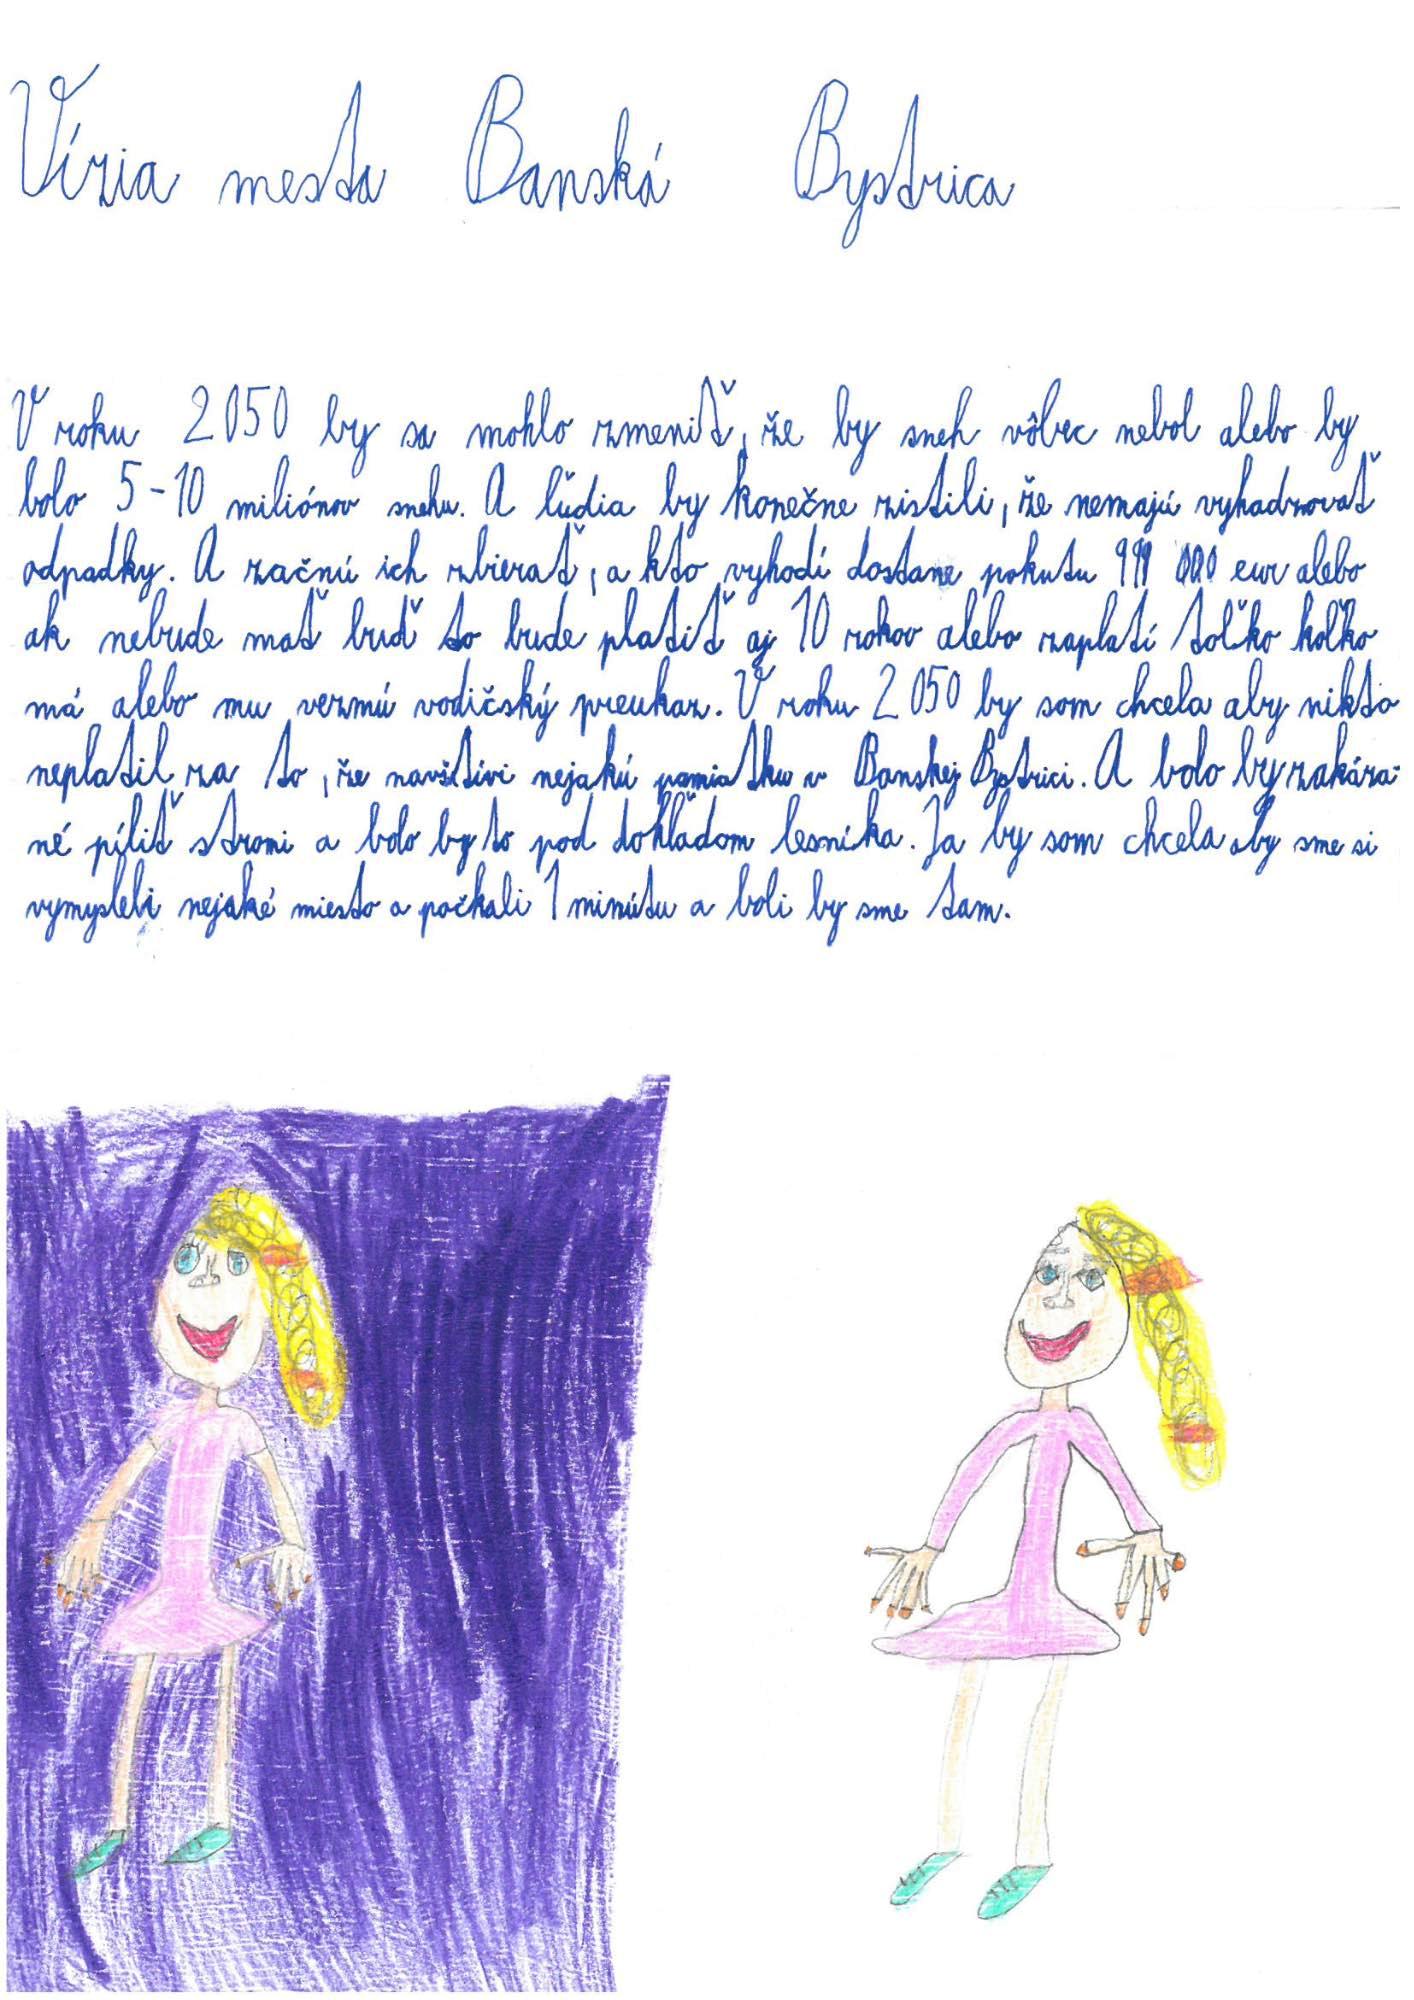 Vízia mesta Banská Bystrica
V roku 2050 by sa mohlo zmeniť, že by sneh vôbec nebol alebo by
bolo 5-10 miliónov snehu. A ľudia by konečne zistili, že nemajú vyhadzovať
odpadky. A začnú ich zbierať, a kto vyhodí dostane pokutu 999 000 eur alebo
ak nebude mať buď to bude platiť aj 10 rokov alebo zaplatí toľko koľko
má alebo mu vezmú vodičský preukaz. V roku 2050 by som chcela aby nikto
neplatil za to, že navštívi nejakú pamiatku v Banskej Bystrici. A bolo by zakáza-
né píliť stromi a bolo by to pod dohľadom lesníka. Ja by som chcela aby sme si
vymysleli nejaké miesto a počkali 1 minútu a boli by sme tam.